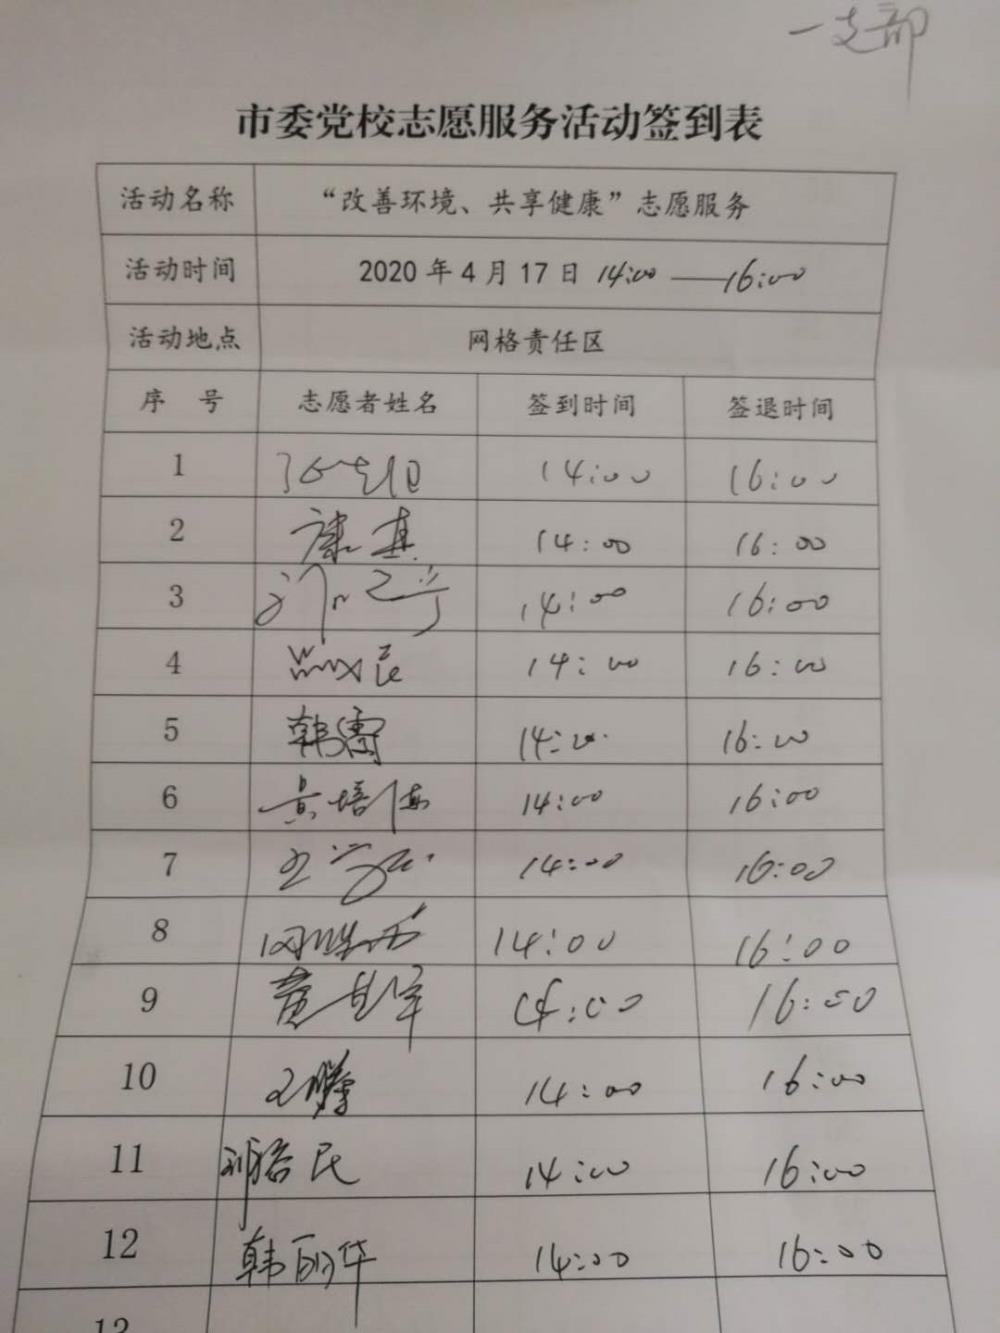 一支部
市委党校志愿服务活动签到表
活动名称 “改善环境、共享健康”志愿服务
活动时间 2020年4月17日 14:00——16:00
活动地点 网格责任区
序 号 志愿者姓名 签到时间 签退时间
1 14:00 16:00
2 康 14:00 16:00
3 14:00 16:00
4 14:00 16:00
5 韩 14:00 16:00
6 黄培 14:00 16:00
7 14:00 16:00
8 14:00 16:00
9 黄 14:00 16:00
10 王 14:00 16:00
11 民 14:00 16:00
12 韩丽华 14:00 16:00
13